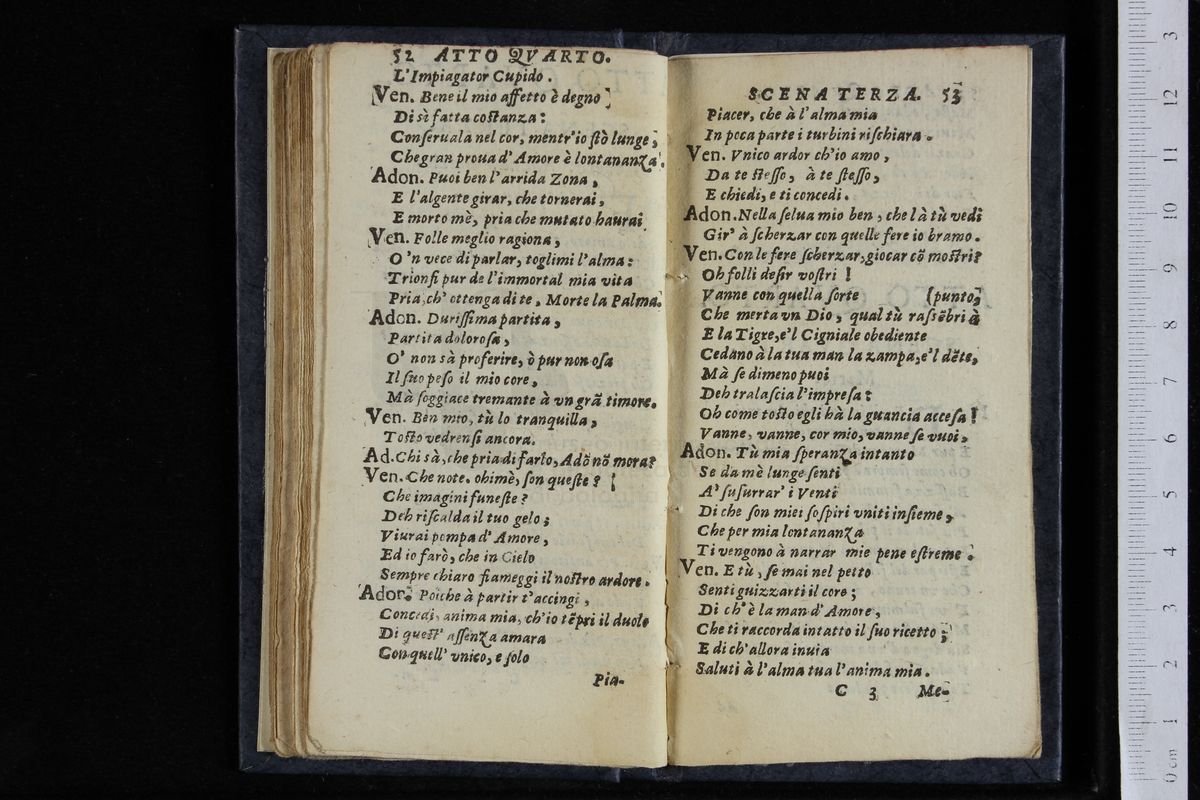 52 ATTO QVARTO.
L'Impiagator Cupido.
Ven. Bene il mio affetto è degno
Di sì fatta costanza:
Conseruala nel cor, mentr'io stò lunge,
Che gran proua d'Amore è lontananza.
Adon. Puoi ben l'arrida Zona,
E l'algente girar, che tornerai,
E morto mè, pria che mutato haurai
Ven. Folle meglio ragiona,
O 'n vece di parlar, toglimi l'alma:
Trionfi pur de l'immortal mia vita
Pria, ch' ottenga di te, Morte la Palma.
Adon. Durissima partita,
Partita dolorosa,
O' non sà proferire, ò pur non osa
Il suo peso il mio core,
Mà soggiace tremante à vn grã timore.
Ven. Ben mio, tù lo tranquilla,
Tosto vedrensi ancora.
Ad. Chi sà, che pria di farlo, Adõ nõ mora?
Ven. Che note, ohimè, son queste?
Che imagini funeste?
Deh riscalda il tuo gelo;
Viurai pompa d'Amore,
Ed io farò, che in Cielo
Sempre chiaro fiameggi il nostro ardore.
Adon. Poiche à partir t'accingi,
Concedi, anima mia, ch'io tẽpri il duolo
Di quest' assenza amara
Con quell' vnico, e solo
Pia-
SCENA TERZA. 53
Piacer, che à l'alma mia
In poca parte i turbini rischiara.
Ven. Vnico ardor ch'io amo,
Da te stesso, à te stesso,
E chiedi, e ti concedi.
Adon. Nella selua mio ben, che là tù vedi
Gir' à scherzar con quelle fere io bramo.
Ven. Con le fere scherzar, giocar cõ mostri?
Oh folli desir vostri!
Vanne con quella sorte (punto,
Che merta vn Dio, qual tù rassẽbri à
E la Tigre, e'l Cigniale obediente
Cedano à la tua man la zampa, e'l dẽte,
Mà se dimeno puoi
Deh tralascia l'impresa:
Oh come tosto egli hà la guancia accesa!
Vanne, vanne, cor mio, vanne se vuoi,
Adon. Tù mia speranza intanto
Se da mè lunge senti
A' susurrar' i Venti
Di che son miei sospiri vniti insieme,
Che per mia lontananza
Ti vengono à narrar mie pene estreme.
Ven. E tù, se mai nel petto
Senti guizzarti il core;
Di ch' è la man d'Amore,
Che ti raccorda intatto il suo ricetto;
E di ch'allora inuia
Saluti à l'alma tua l'anima mia.
C 3 Me-
3
12
11
10
9
8
7
6
5
4
3
2
1
0 cm